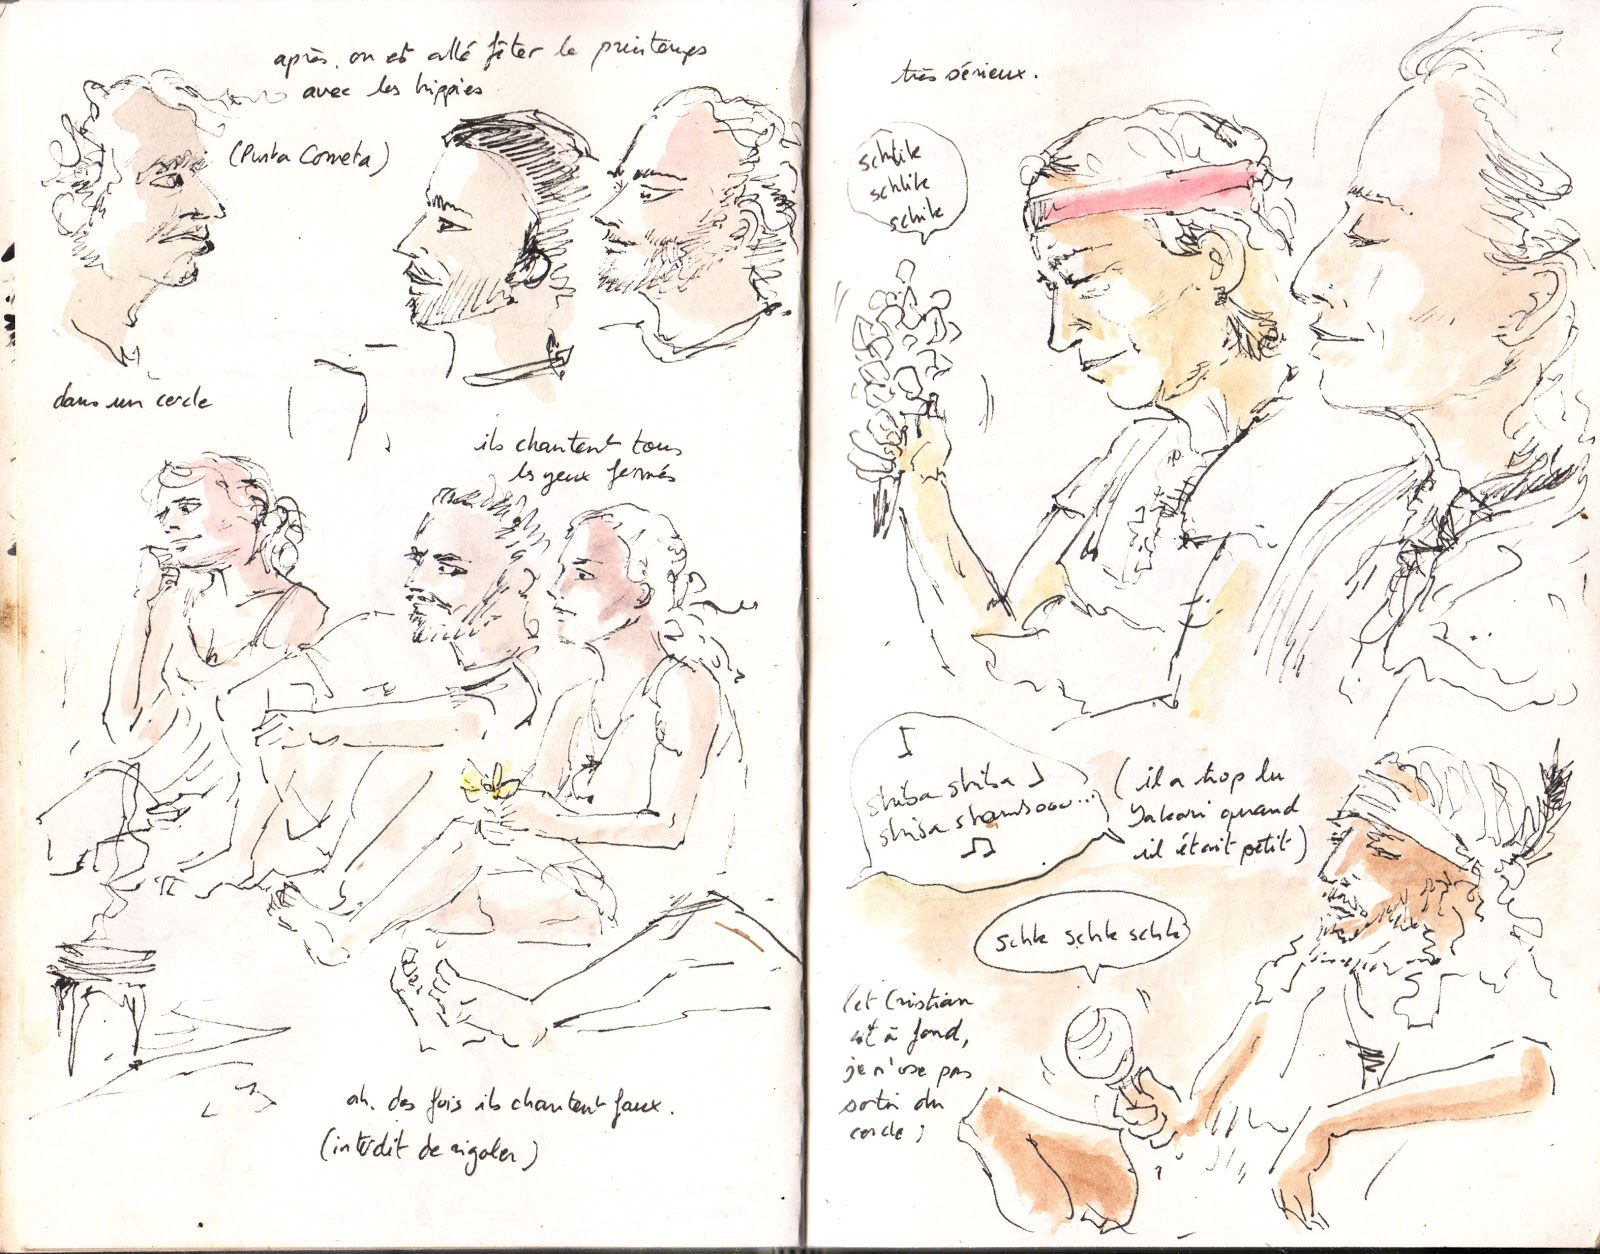 après, on est allé fêter le printemps
avec les hippies
(Punta Cometa)
dans un cercle
ils chantent tous
les yeux fermés
ah. des fois ils chantent faux.
(interdit de rigoler)
très sérieux.
schlik
schlik
schlik
shiba shiba
shiba shambooo...
(il a trop lu
Yakari quand
il était petit)
schlk schlk schlk
(et Cristian
est à fond,
je n'ose pas
sortir du
cercle)